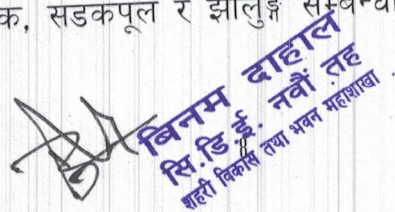 क, सडकपूल र झोलुङ्गे सम्बन्धी
8
बिनम दाहाल
सि.डि.ई. नवौं तह
शहरी विकास तथा भवन महाशाखा